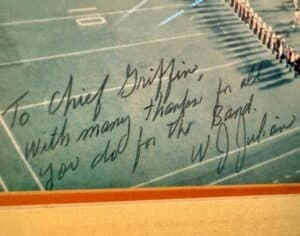 To Chief Griffin,
With many thanks for all
you do for the Band.
W J Julian
10